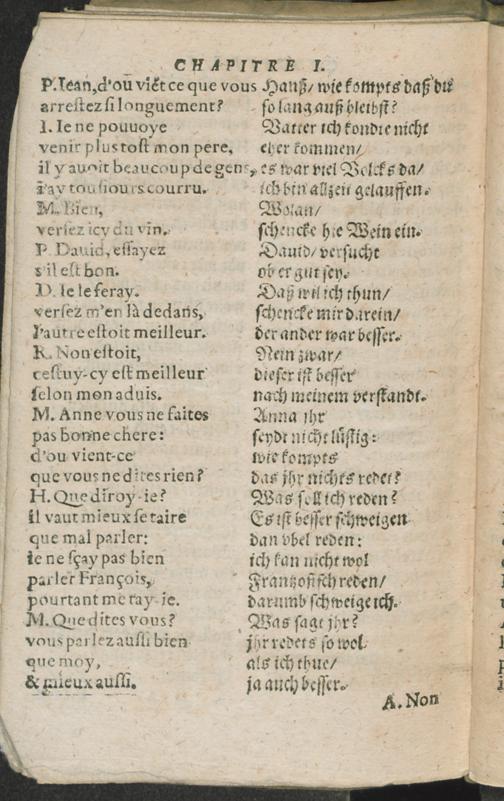 CHAPITRE I.
P. Iean, d'ou viẽt ce que vous Hanß/ wie kompts daß du
arrestez si longuement? so lang auß bleibst?
I. Ie ne pouuoye Vatter ich kondte nicht
venir plus tost mon pere, eher kommen/
il y auoit beaucoup de gens, es war viel Volcks da/
i'ay tousiours courru. ich bin allzeit gelauffen.
M. Bien, Wolan/
versez icy du vin. schencke hie Wein ein.
P. Dauid, essayez Dauid/ versucht
s'il est bon. ob er gut sey.
D. Ie le feray. Daß wil ich thun/
versez m'en là dedãs, schencke mir darein/
l'autre estoit meilleur. der ander war besser.
R. Non estoit, Nein zwar/
cestuy-cy est meilleur dieser ist besser
selon mon aduis. nach meinem verstandt.
M. Anne vous ne faites Anna jhr
pas bonne chere: seydt nicht lüstig:
d'ou vient-ce wie kompts
que vous ne dites rien? das jhr nichts redet?
H. Que diroy-ie? Was soll ich reden?
il vaut mieux se taire Es ist besser schweigen
que mal parler: dan vbel reden:
ie ne sçay pas bien ich kan nicht wol
parler François, Frantzosisch reden/
pourtant me tay-ie. darumb schweige ich.
M. Que dites vous? Was sagt jhr?
vous parlez aussi bien jhr redets so wol
que moy, als ich thue/
& mieux aussi. ja auch besser.
A. Non